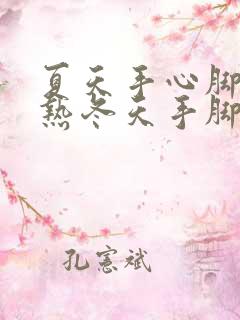 夏天手心脚
热冬天手脚
孔宪斌